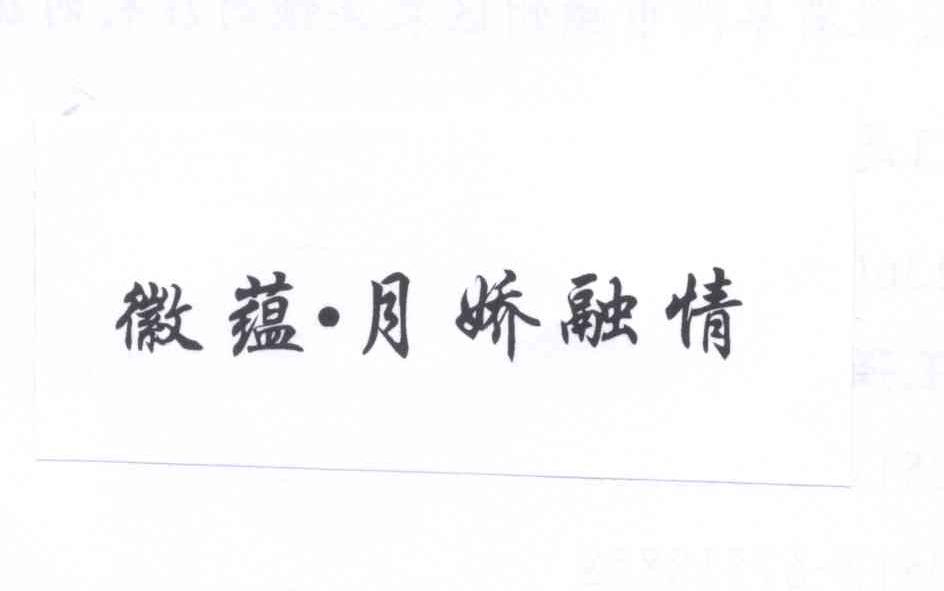 徽蕴·月娇融情